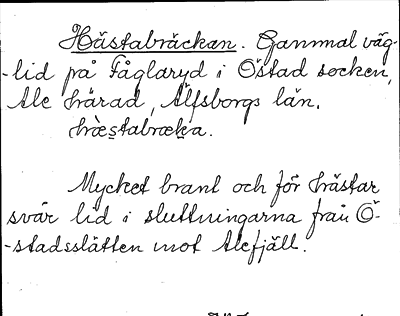 Hästabräckan. Gammal väg-
-lid på Fåglaryd i Östad socken,
Ale härad, Älfsborgs län.
hæ̀stabræka.
Mycket brant och för hästar
svår lid i sluttningarna från Ö-
-stadsslätten mot Alefjäll.